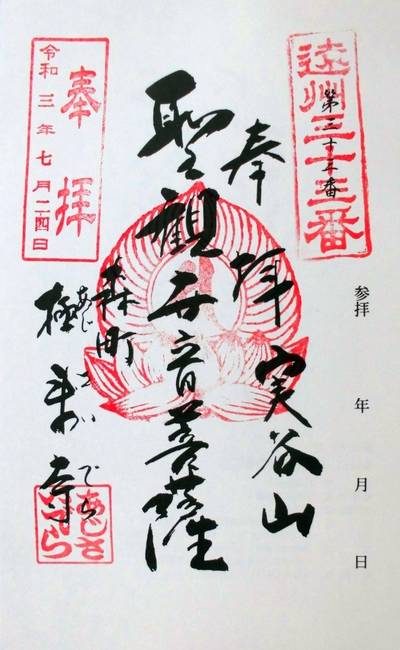 参拝 年 月 日
遠州三十三番
第三十三番
奉拝 実谷山
聖観世音菩薩
森町
あじさいでら
極楽寺
奉拝
令和三年七月二四日
あじさ
いでら